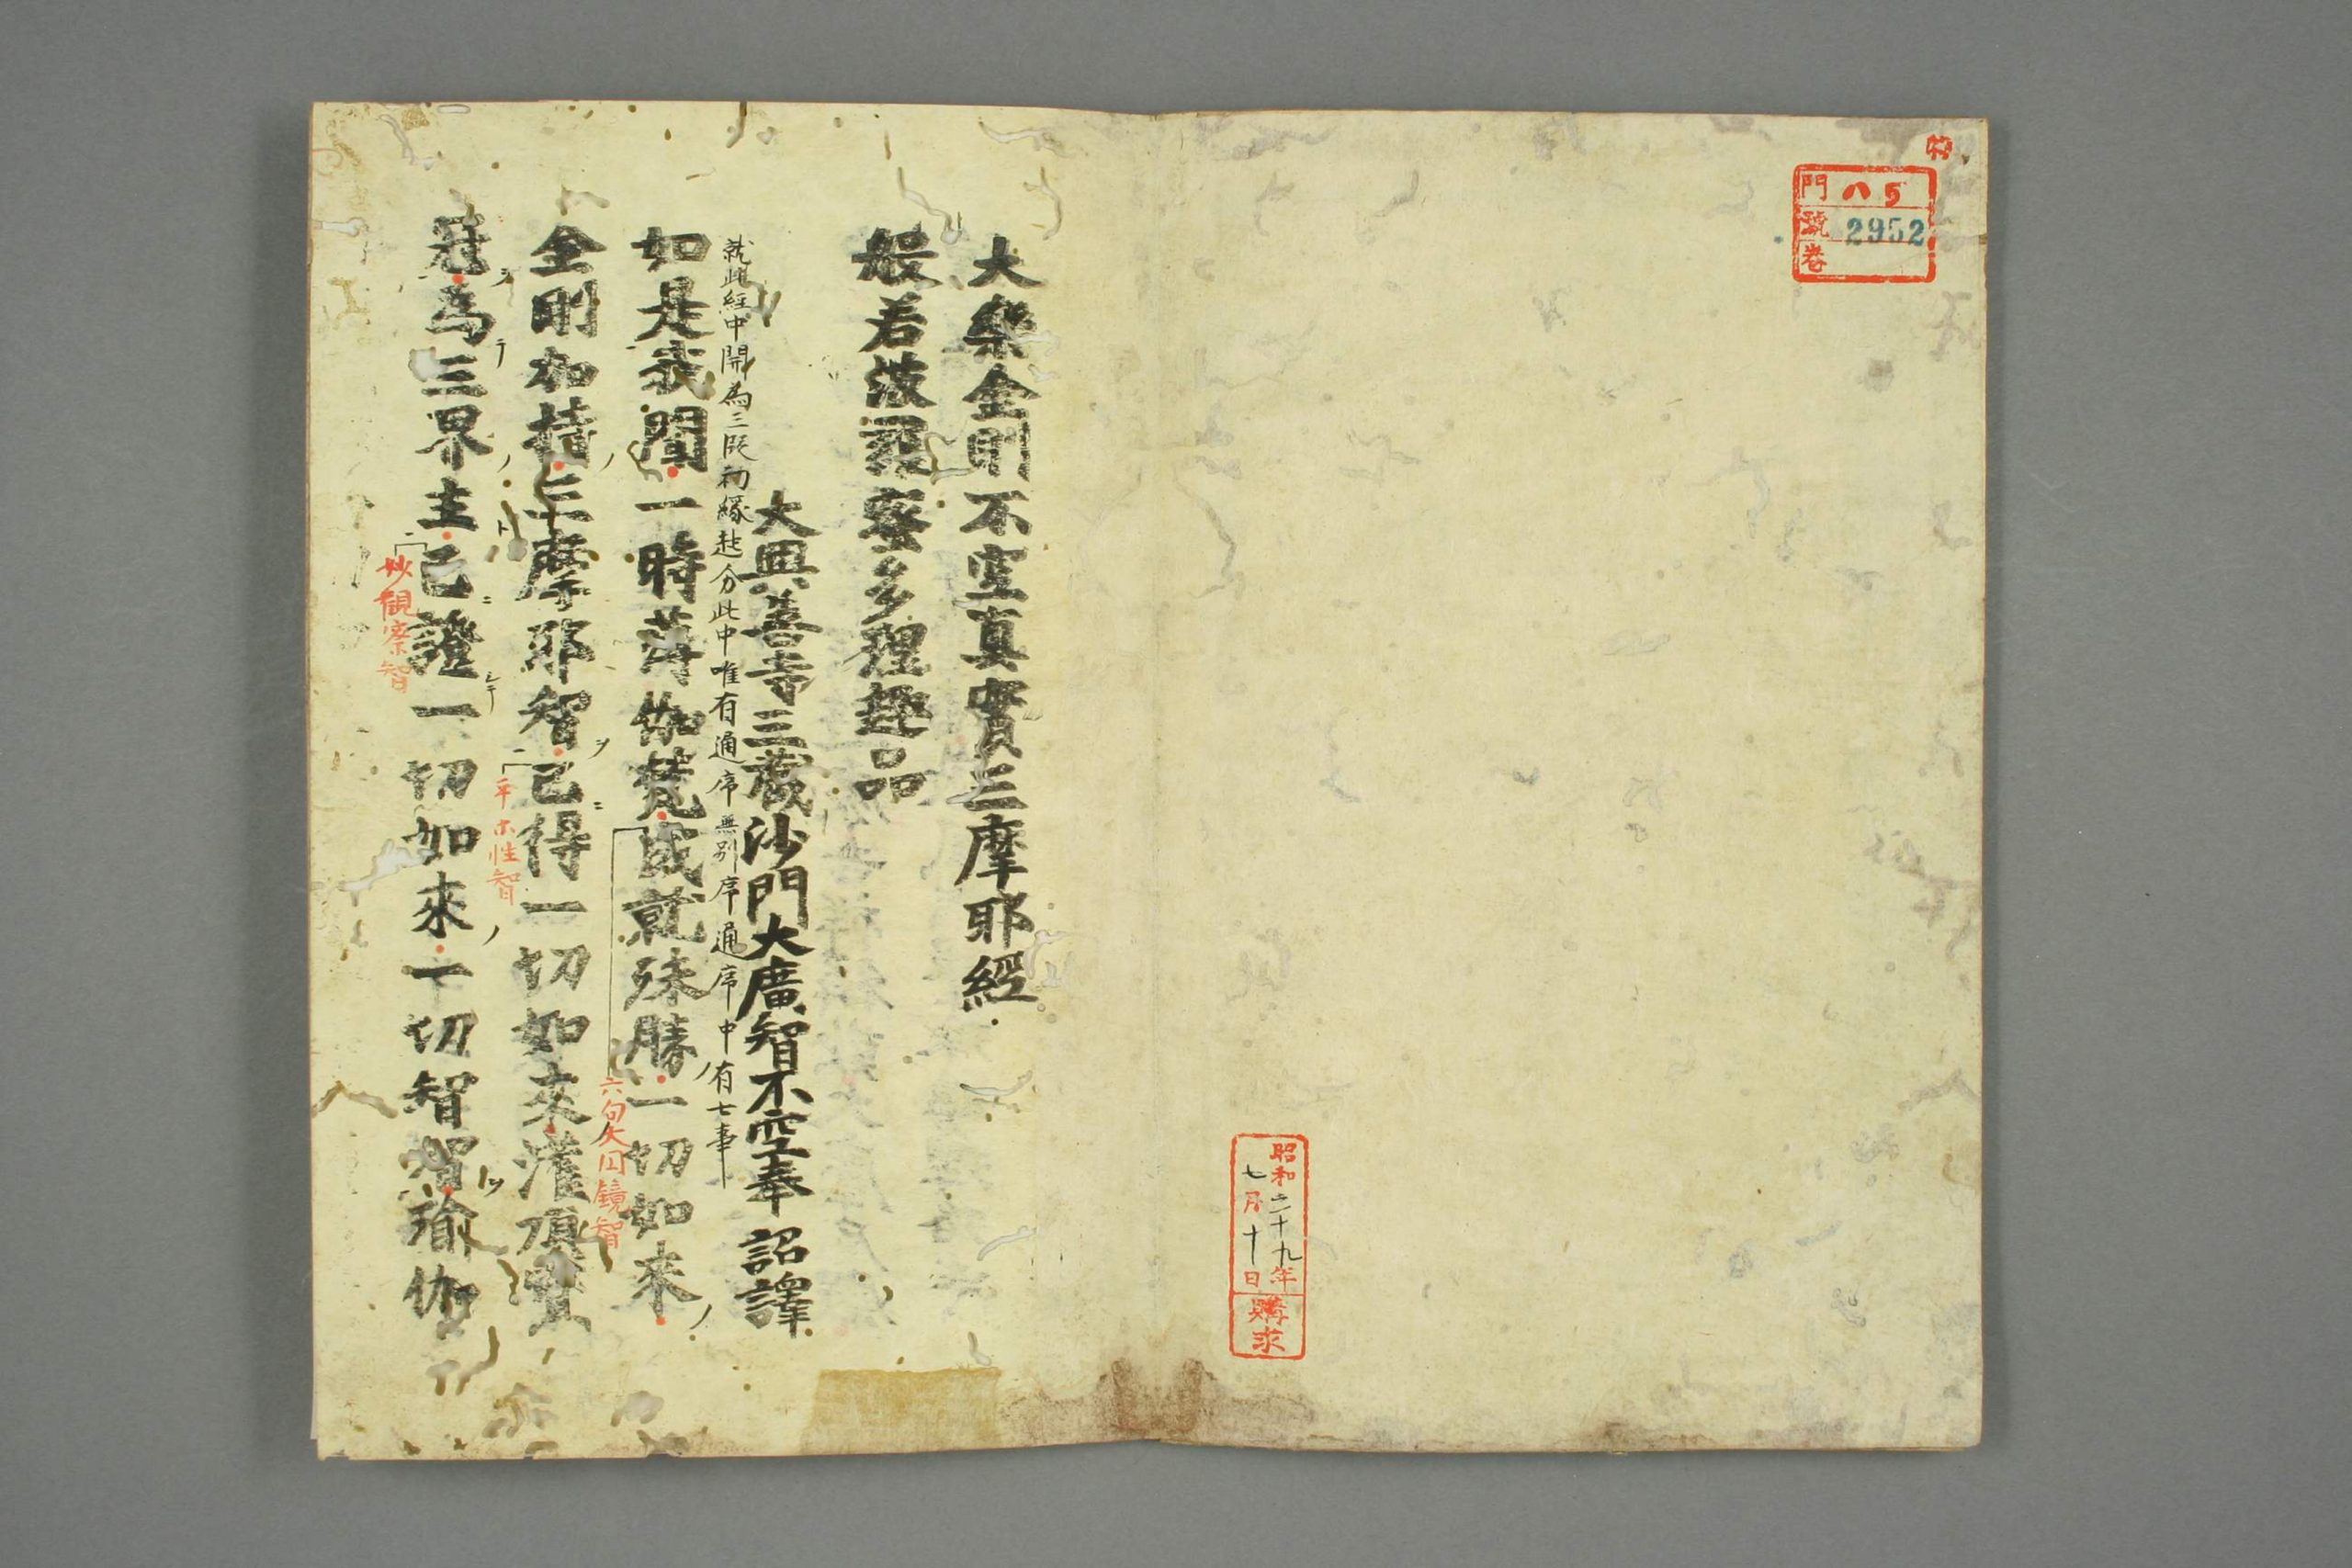 特
門 八 5
號 2952
卷
昭和二十九年
七月十日
購求
大樂金剛不空真實三摩耶經
般若波羅蜜多理趣品
大興善寺三藏沙門大廣智不空奉 詔譯
就此經中開為三段初緣起分此中唯有通序無別序通序中有七事
如是我聞一時薄伽梵成就殊勝一切如来
六句大円鏡智
金剛加持三摩耶智已得一切如来灌頂寶
平等性智
冠為三界主已證一切如來一切智智瑜伽
妙觀察智